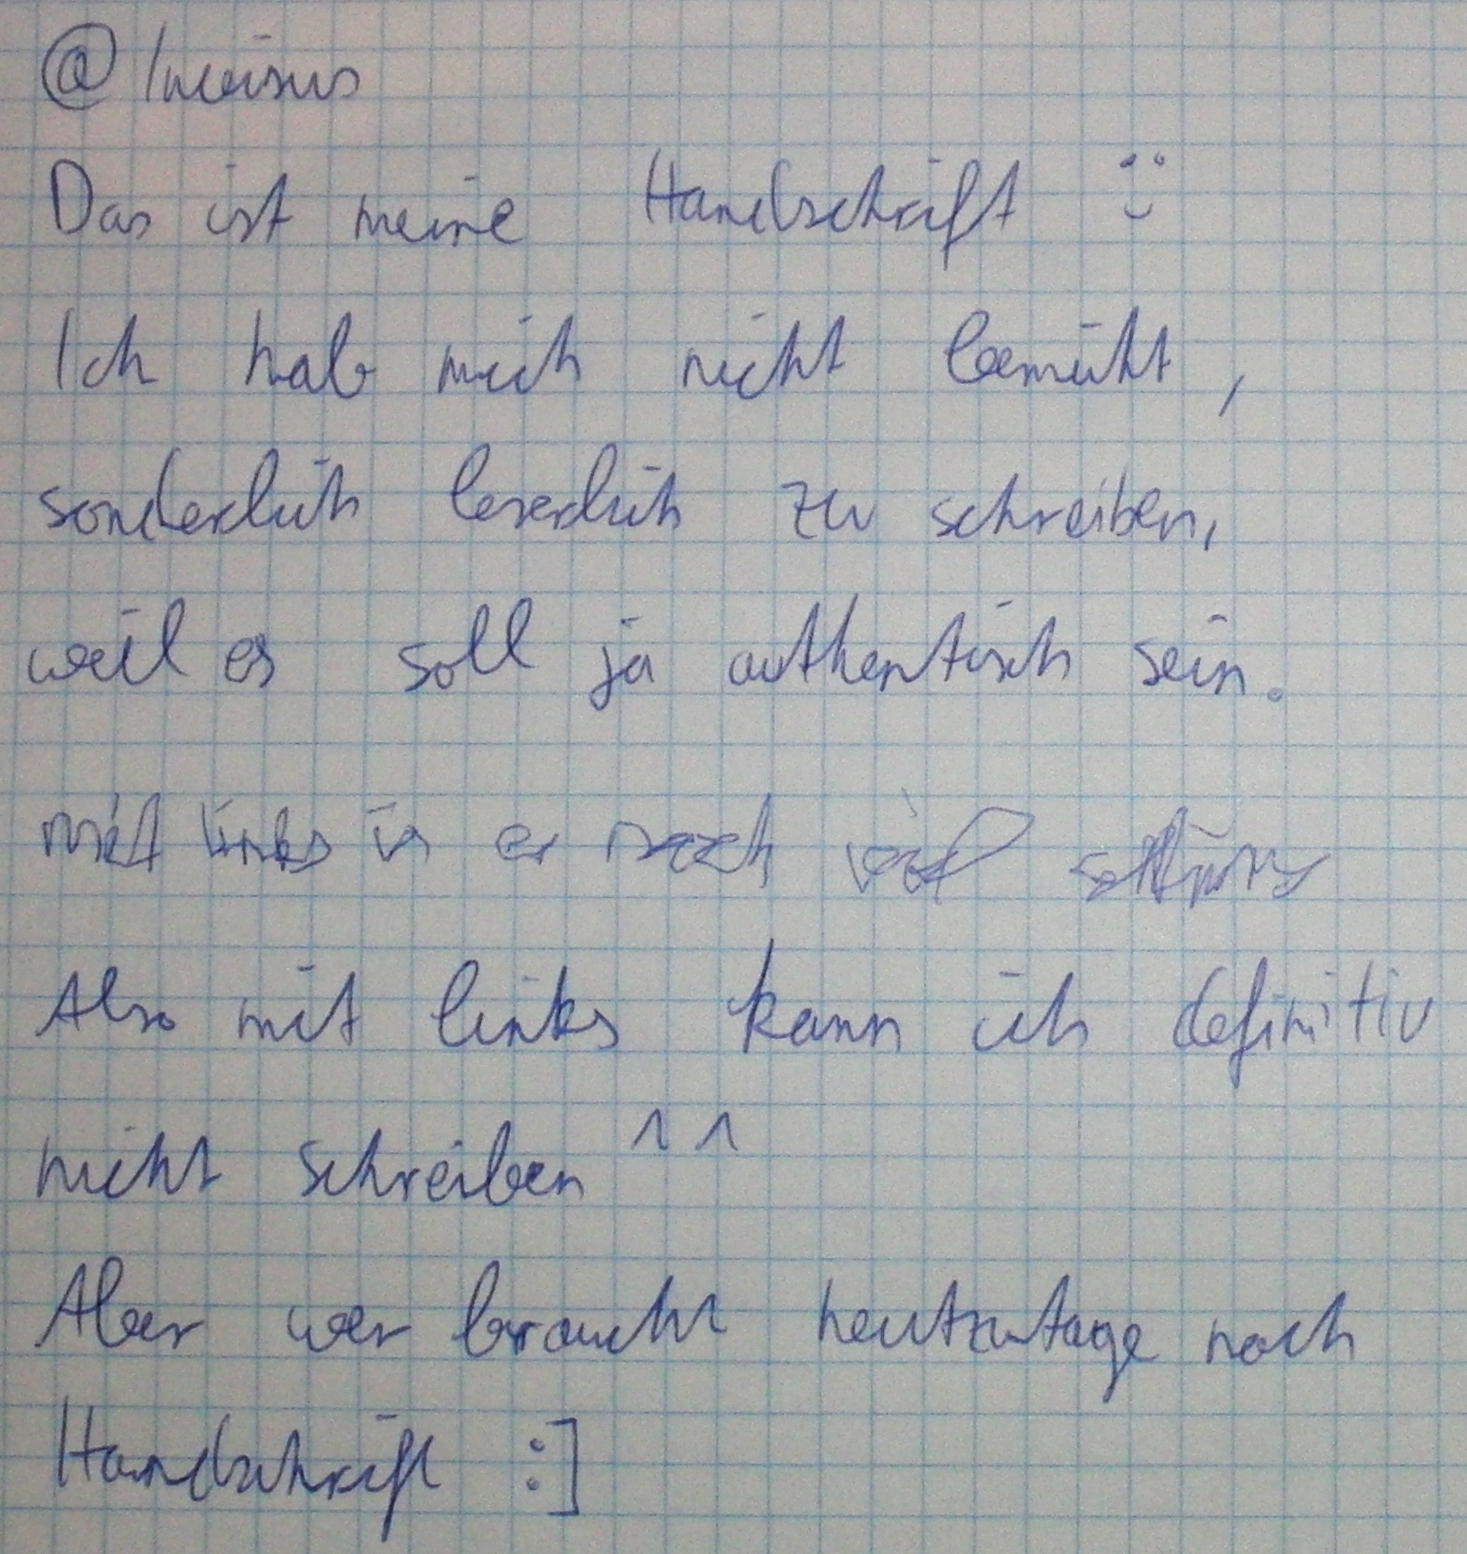 @Incisus
Das ist meine Handschrift :)
Ich hab mich nicht bemüht,
sonderlich leserlich zu schreiben,
weil es soll ja authentisch sein.
mit links is es noch viel
Also mit links kann ich definitiv
nicht schreiben ^^
Aber wer braucht heutzutage noch
Handschrift :]